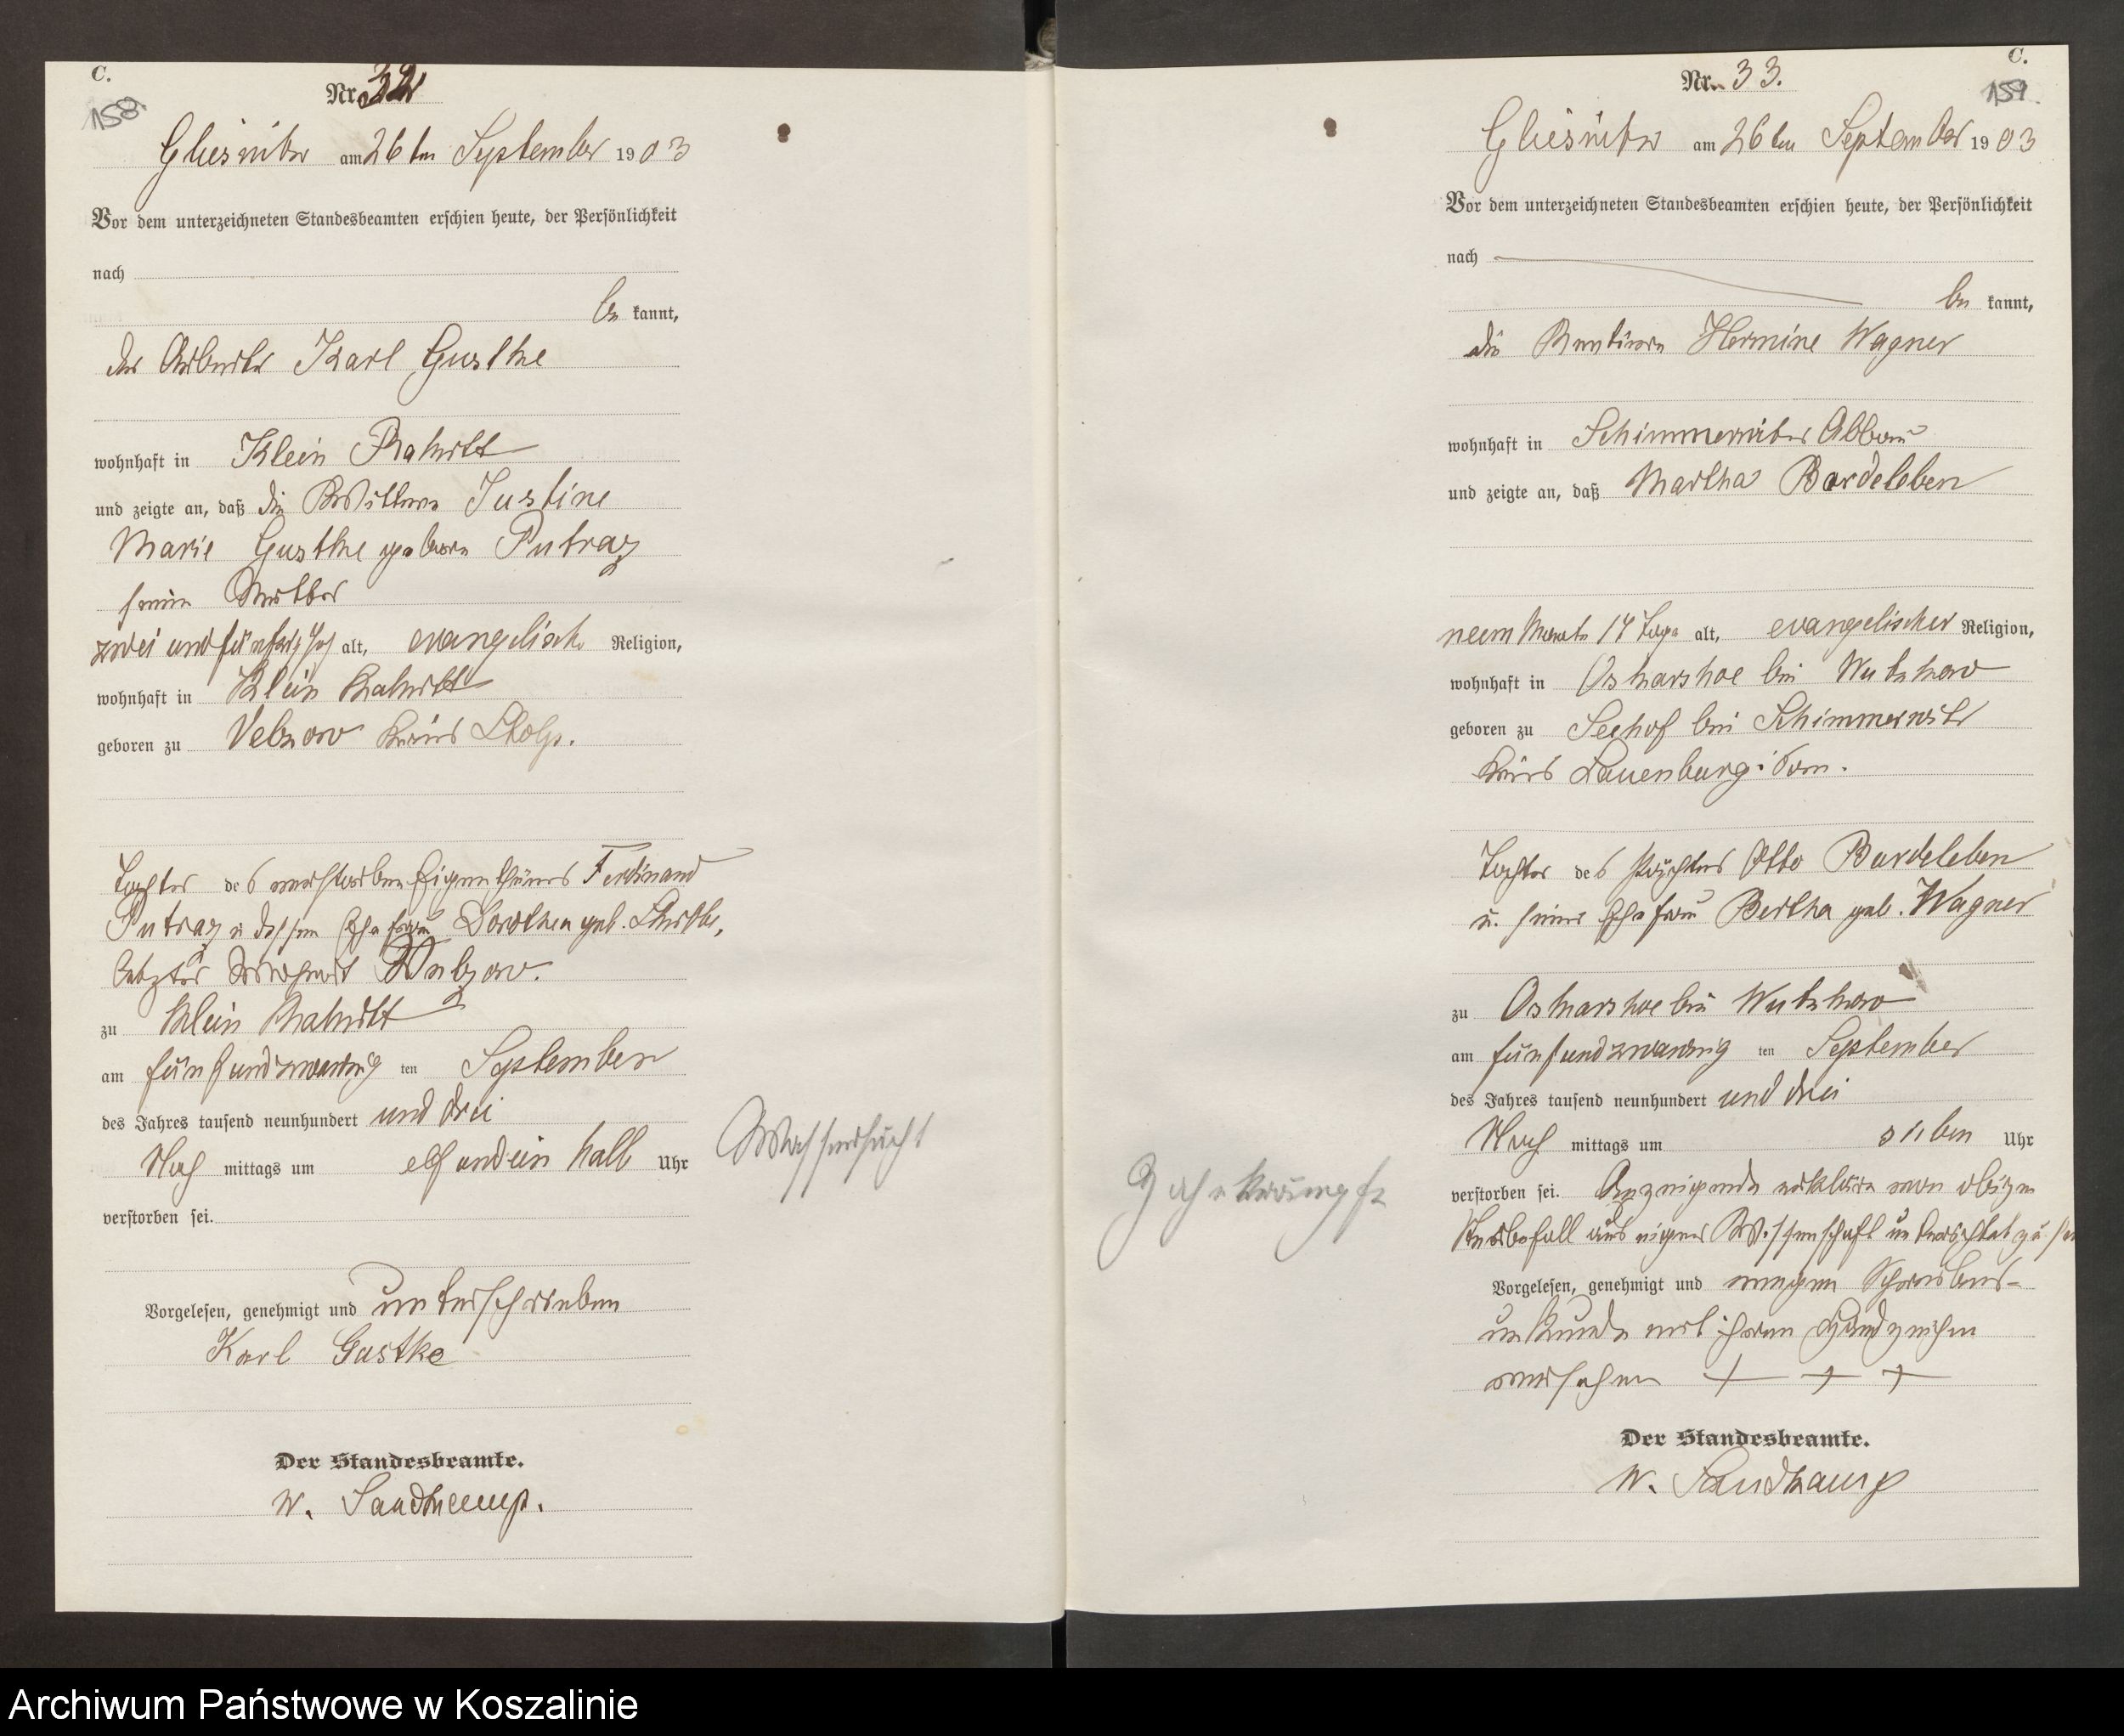 C.
158.
Nr. 32
Gliesnitz am 26ten September 1903
Vor dem unterzeichneten Standesbeamten erschien heute, der Persönlichkeit
nach
be kannt,
der Arbeiter Karl Gustke
wohnhaft in Klein Rakitt
und zeigte an, daß die Wittwe Justine
Marie Gustke geborene Putraz
seine Mutter
zwei und fünfzig Jah alt, evangelisch Religion,
wohnhaft in Klein Rakitt
geboren zu Velzow Kreis Stolp.
Tochter des verstorben Eigenthümers Ferdinand
Putraz u dessen Ehefrau Dorothea geb.
letzter Wohnort
zu Klein Rakitt
am fünfundzwanzig ten September
des Jahres tausend neunhundert und drei
Nach mittags um elf und ein halb Uhr
verstorben sei.
Wassersucht
Vorgelesen, genehmigt und unterschrieben
Karl Gustke
Der Standesbeamte.
W. Sandkamp.
C.
159.
Nr. 33.
Gliesnitz am 26ten September 1903
Vor dem unterzeichneten Standesbeamten erschien heute, der Persönlichkeit
nach
be kannt,
die Rentiere Hermine Wagner
wohnhaft in Schimmerwitz Abbau
und zeigte an, daß Martha Bardeleben
neun Monate 14 Tage alt, evangelischer Religion,
wohnhaft in Oskarshoe bei Wutzkow
geboren zu Seehof bei Schimmerwitz
Kreis Lauenburg i Pom.
Tochter des Pächters Otto Bardeleben
u. seiner Ehefrau Bertha geb. Wagner
zu Oskarshoe bei Wutzkow
am fünfundzwanzig ten September
des Jahres tausend neunhundert und drei
Nach mittags um sieben Uhr
verstorben sei. Anzeigende erkläre von obigem
Sterbefall aus eigener Wissenschaft unterrichtet zu sein
Zahnkrämpfe
Vorgelesen, genehmigt und wegen Schreibens-
unkunde mit ihrem Handzeichen
versehen + + +
Der Standesbeamte.
W. Sandkamp
Archiwum Państwowe w Koszalinie